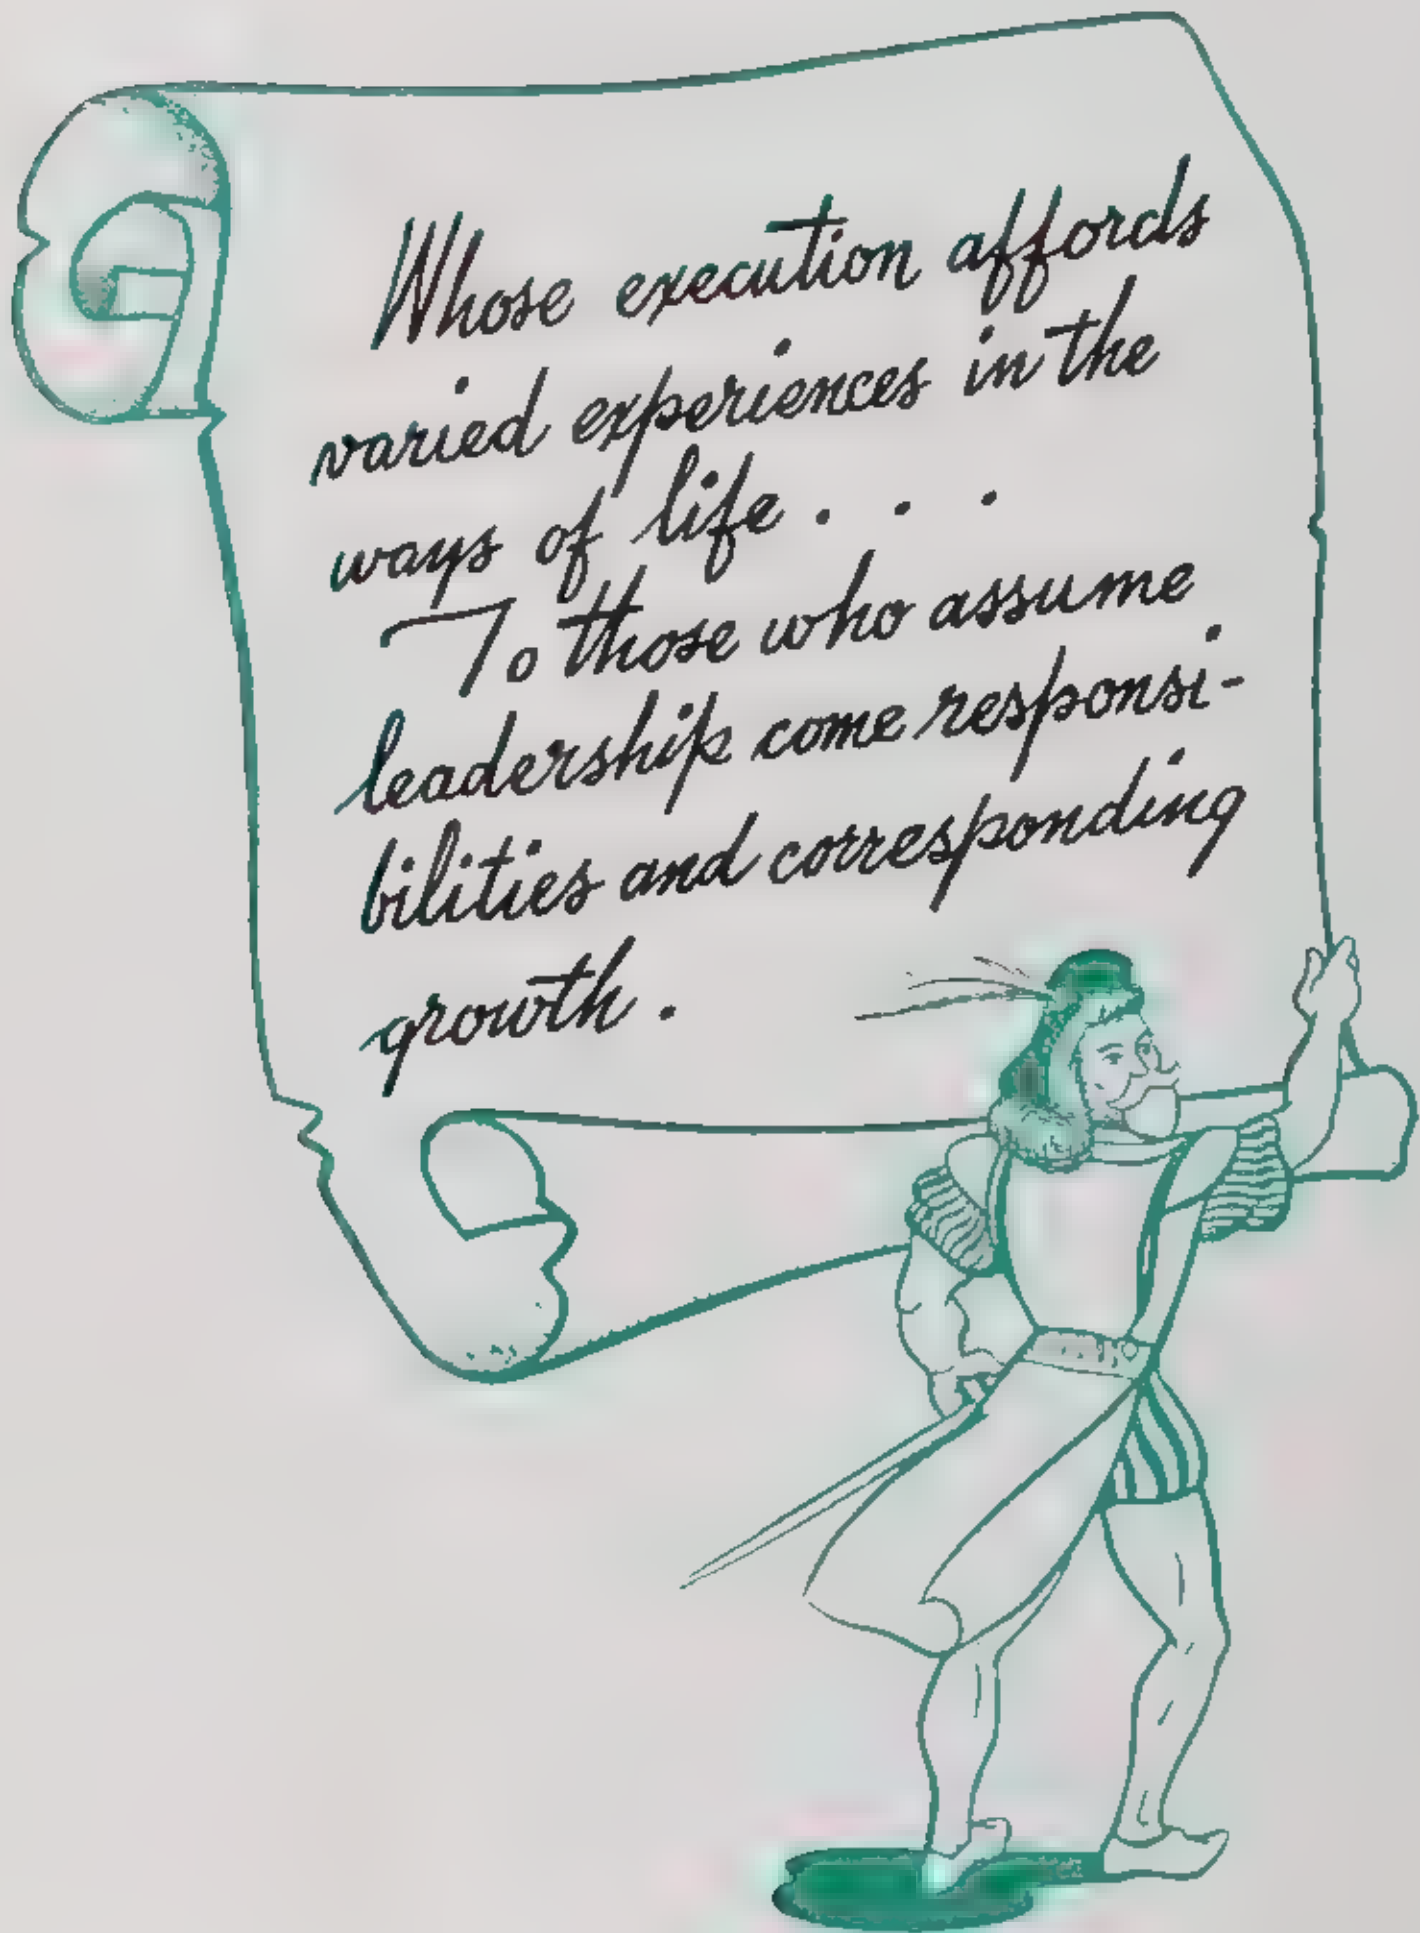 Whose execution affords
varied experiences in the
ways of life . . .
To those who assume
leadership come responsi-
bilities and corresponding
growth.